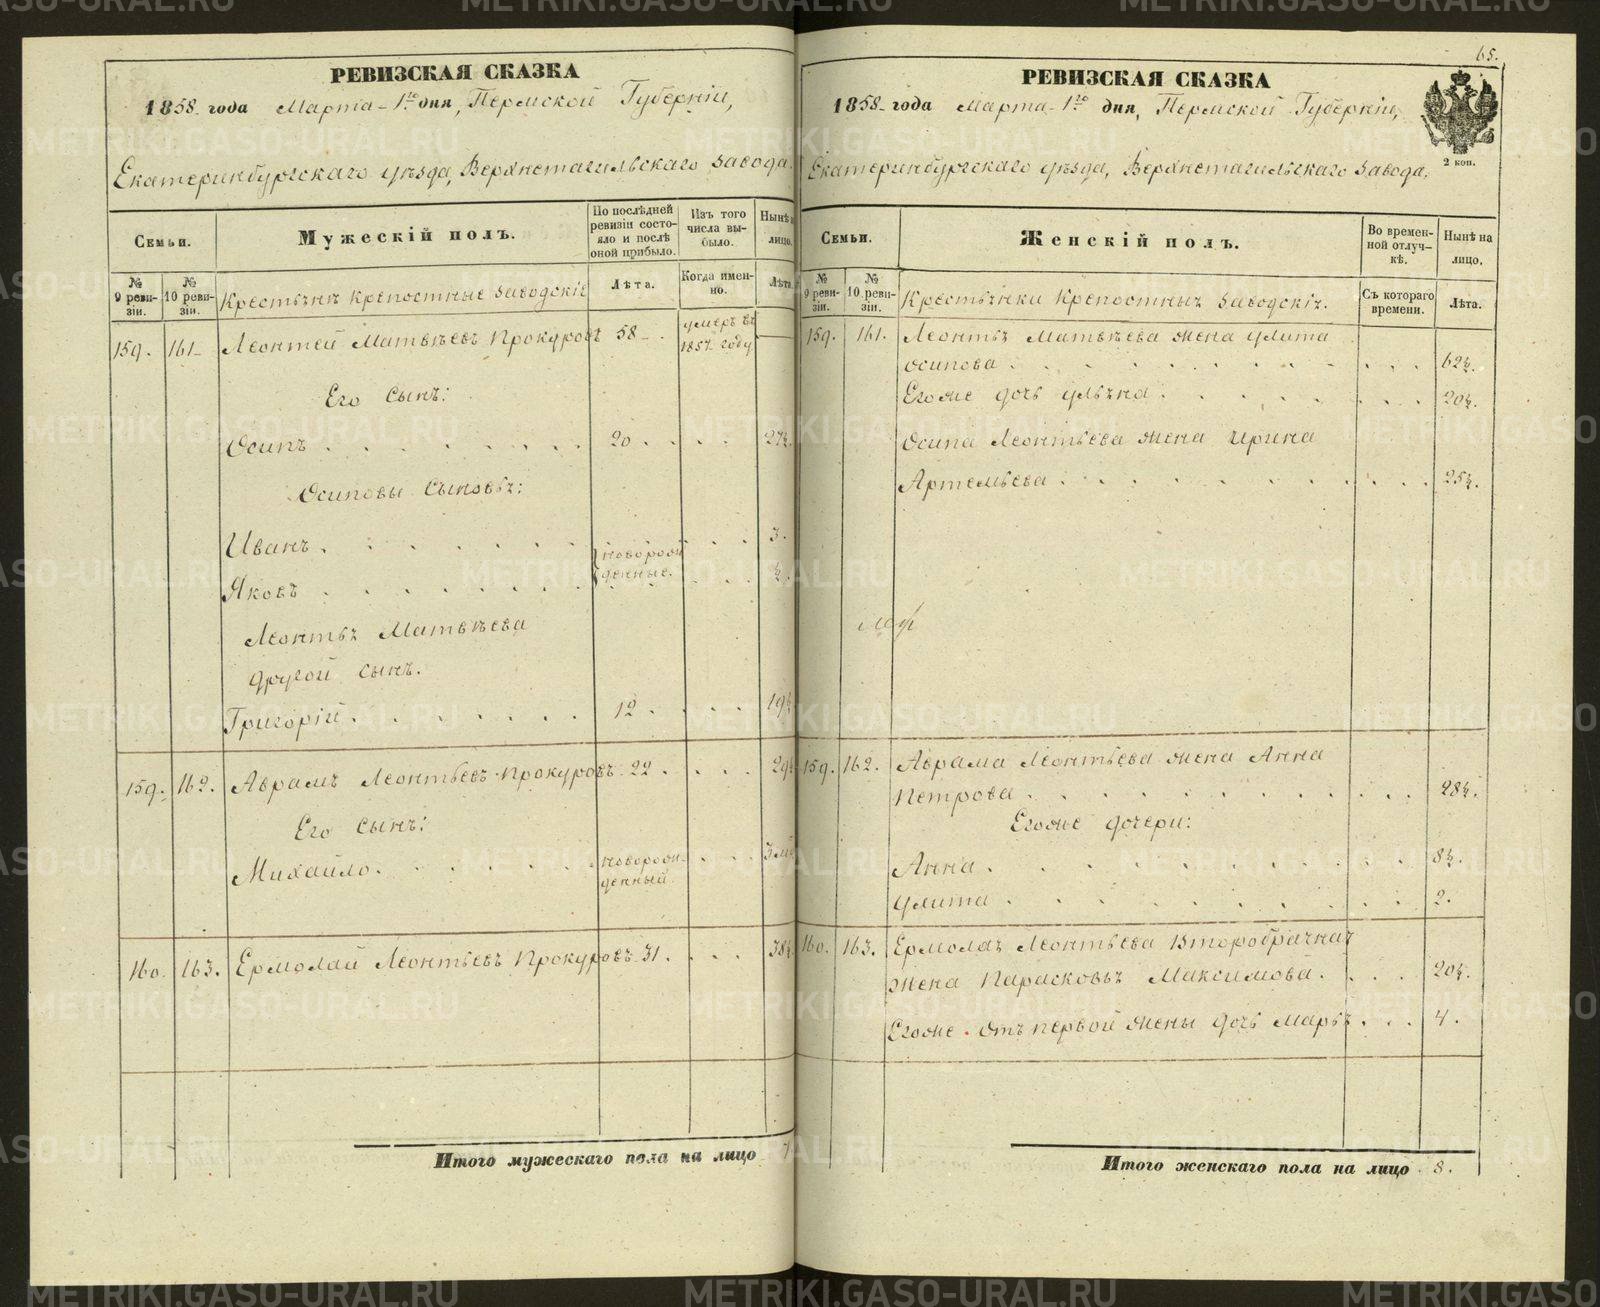 РЕВИЗСКАЯ СКАЗКА
1858 года Марта 1го дня, Пермской Губерніи,
Екатеринбургскаго уѣзда, Верхнетагильскаго завода.
Семьи.
Мужескій полъ.
По послѣдней ревизіи состояло и послѣ оной прибыло.
Изъ того числа выбыло.
Нынѣ на лицо.
№ 9 ревизіи.
№ 10 ревизіи.
Крестьяне крепостные заводскіе
Лѣта.
Когда именно.
Лѣта.
159. 161. Леонтей Матвѣевъ Прокуровъ 58 умеръ въ 1857 году
Его сынъ:
Осипъ 20 27½
Осиповы сыновья:
Иванъ 3.
новорожденные.
Яковъ ½.
Леонтья Матвѣева
другой сынъ.
Григорій 12 19½
159. 162. Аврамъ Леонтьевъ Прокуровъ 22 29½
Его сынъ:
Михайло новорожденный
160. 163. Ермолай Леонтьевъ Прокуровъ 31 38½
Итого мужескаго пола на лицо
65.
РЕВИЗСКАЯ СКАЗКА
1858 года Марта 1го дня, Пермской Губерніи,
2 коп.
Екатеринбургскаго уѣзда, Верхнетагильскаго завода.
Семьи.
Женскій полъ.
Во временной отлучкѣ.
Нынѣ на лицо.
№ 9 ревизіи.
№ 10 ревизіи.
Крестьянки крепостныя заводскія.
Съ котораго времени.
Лѣта.
159. 161. Леонтья Матвѣева жена улита
осипова 62½.
Егоже дочь ульяна 20½.
Осипа Леонтьева жена ирина
Артемьева 25½.
159. 162. Аврама Леонтьева жена Анна
Петрова 28½.
Егоже дочери:
Анна 8½.
улита 2.
160. 163. Ермолая Леонтьева второбрачная
жена Парасковья Максимова 20½.
Егоже отъ первой жены дочь Марья 4.
Итого женскаго пола на лицо 8.
METRIKI.GASO-URAL.RU